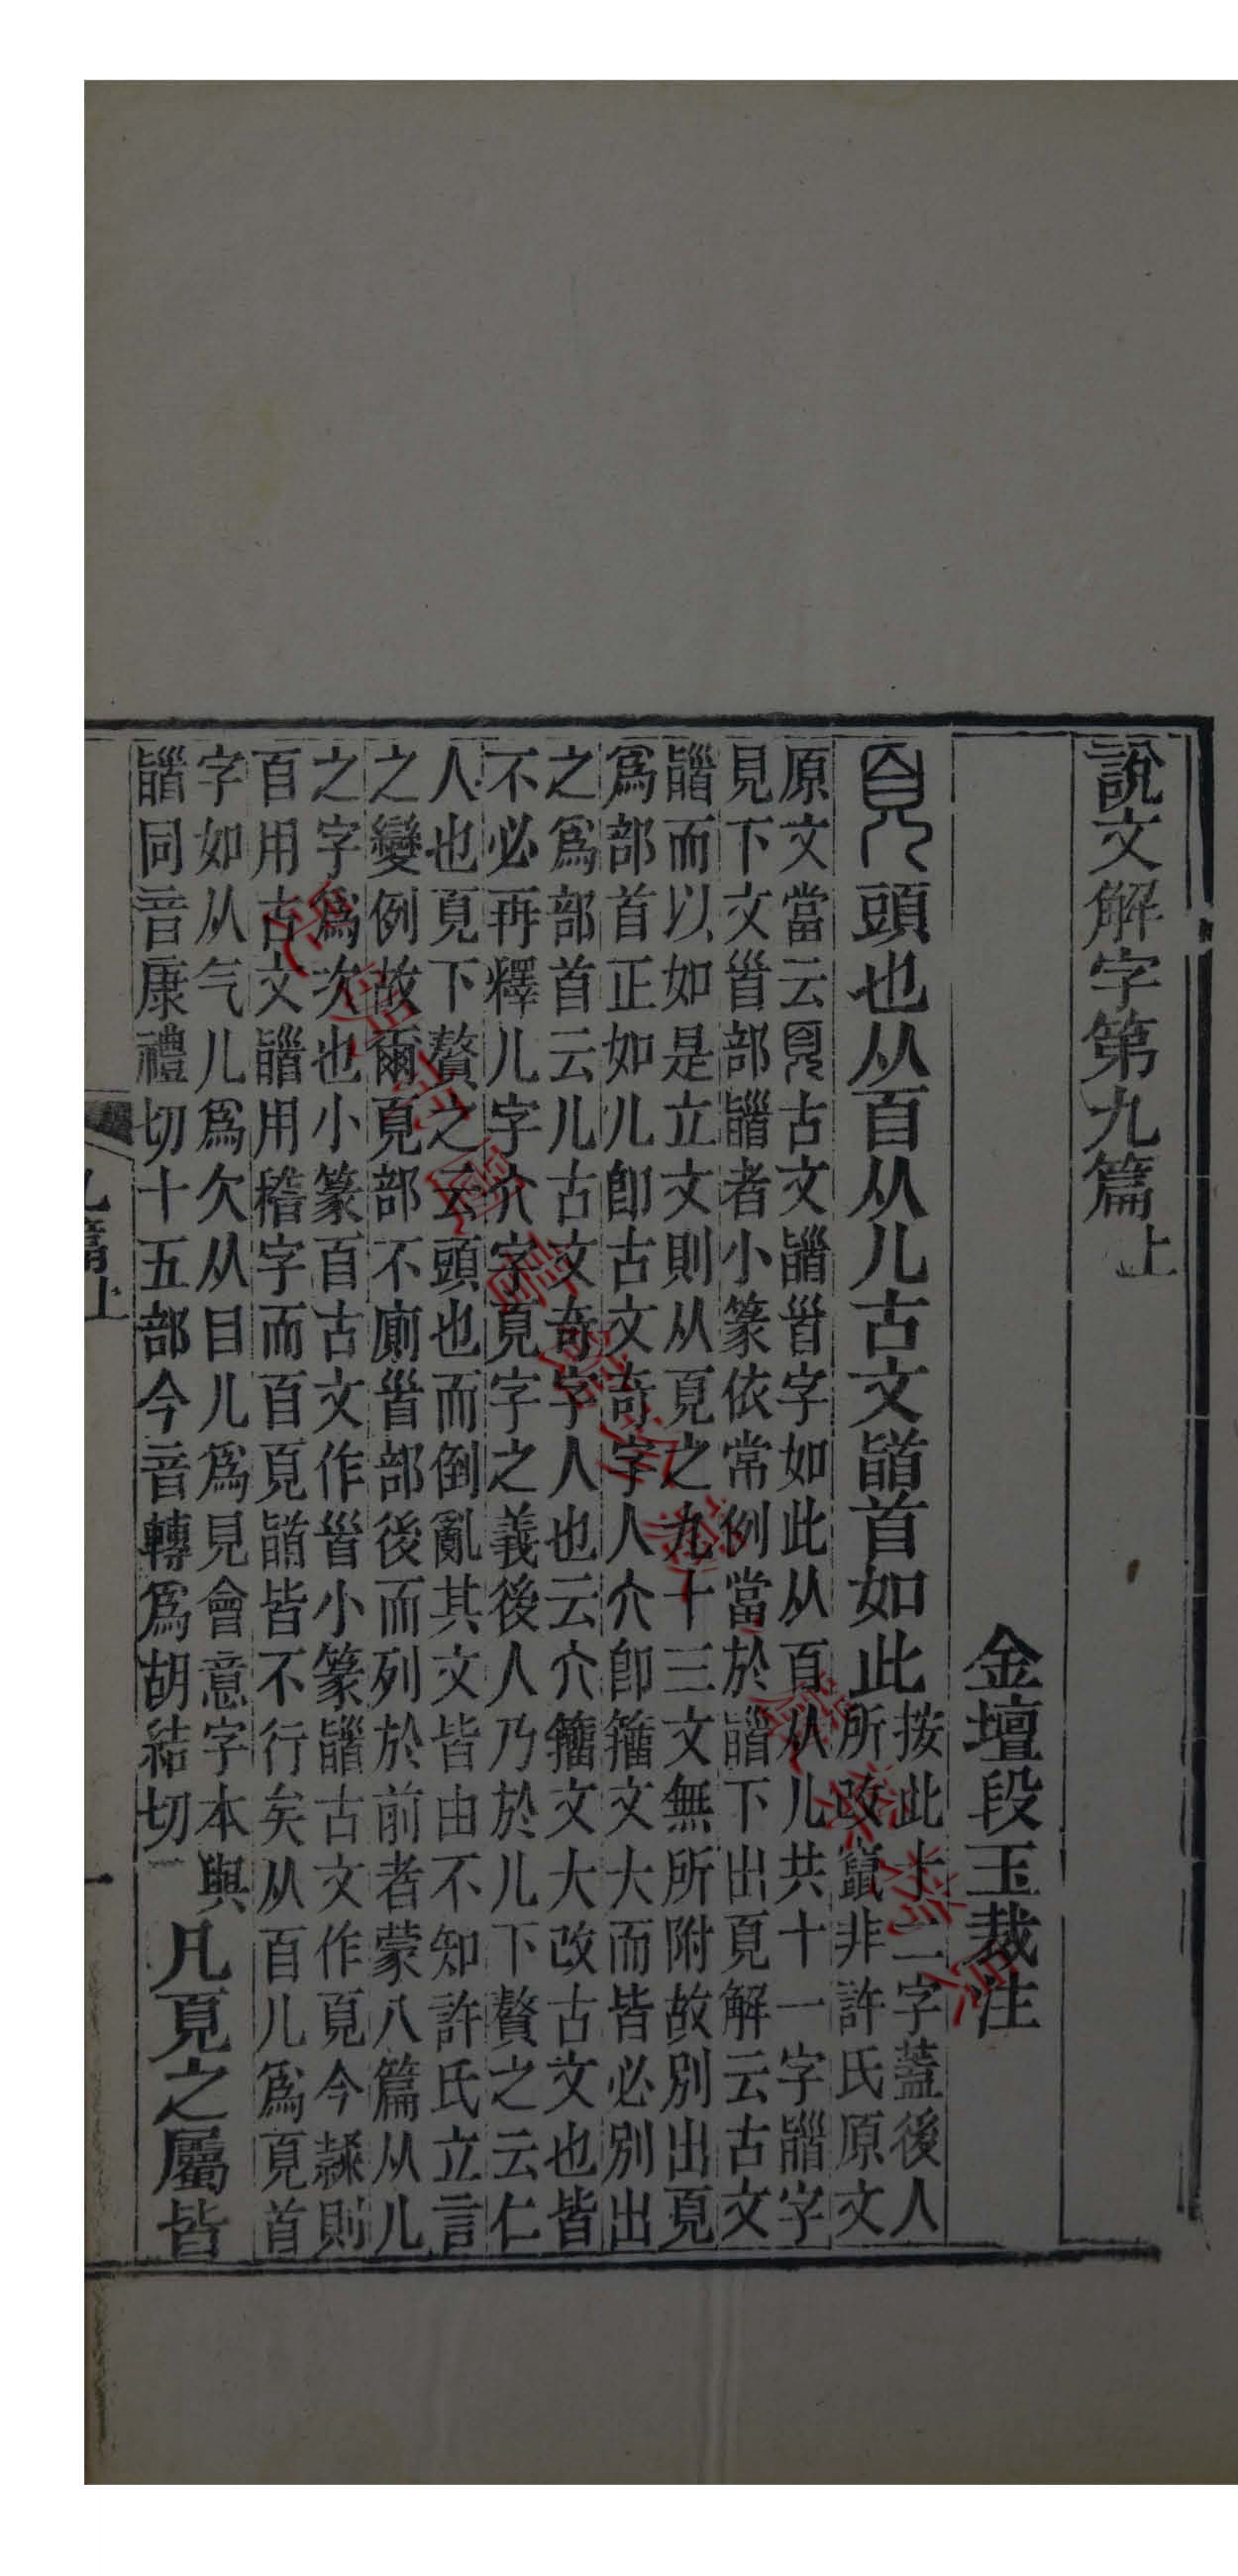 說文解字第九篇上
金壇段玉裁注
𩑋頭也从𦣻从儿古文䭫首如此
按此十二字蓋後人
所改竄非許氏原文
原文當云𩑋古文䭫𩠐字如此从𦣻从儿共十一字䭫字
見下文𩠐部䭫者小篆依常例當於䭫下出𩑋解云古文
䭫而以如是立文則从𩑋之九十三文無所附故別出𩑋
爲部首正如儿卽古文奇字人亣卽籒文大而皆必別出
之爲部首云儿古文奇字人也云亣籒文大改古文也皆
不必再釋儿字亣字𩑋字之義後人乃於儿下贅之云仁
人也𩑋下贅之云頭也而倒亂其文皆由不知許氏立言
之變例故爾𩑋部不廁𩠐部後而列於前者蒙八篇从儿
之字爲次也小篆𦣻古文作𩠐小篆䭫古文作𩑋今隸則
𦣻用古文䭫用稽字而𦣻𩑋䭫皆不行矣从𦣻儿爲𩑋首
字如从气儿爲欠从目儿爲見會意字本與
䭫同音康禮切十五部今音轉爲胡結切
凡𩑋之屬皆
九篇上
一